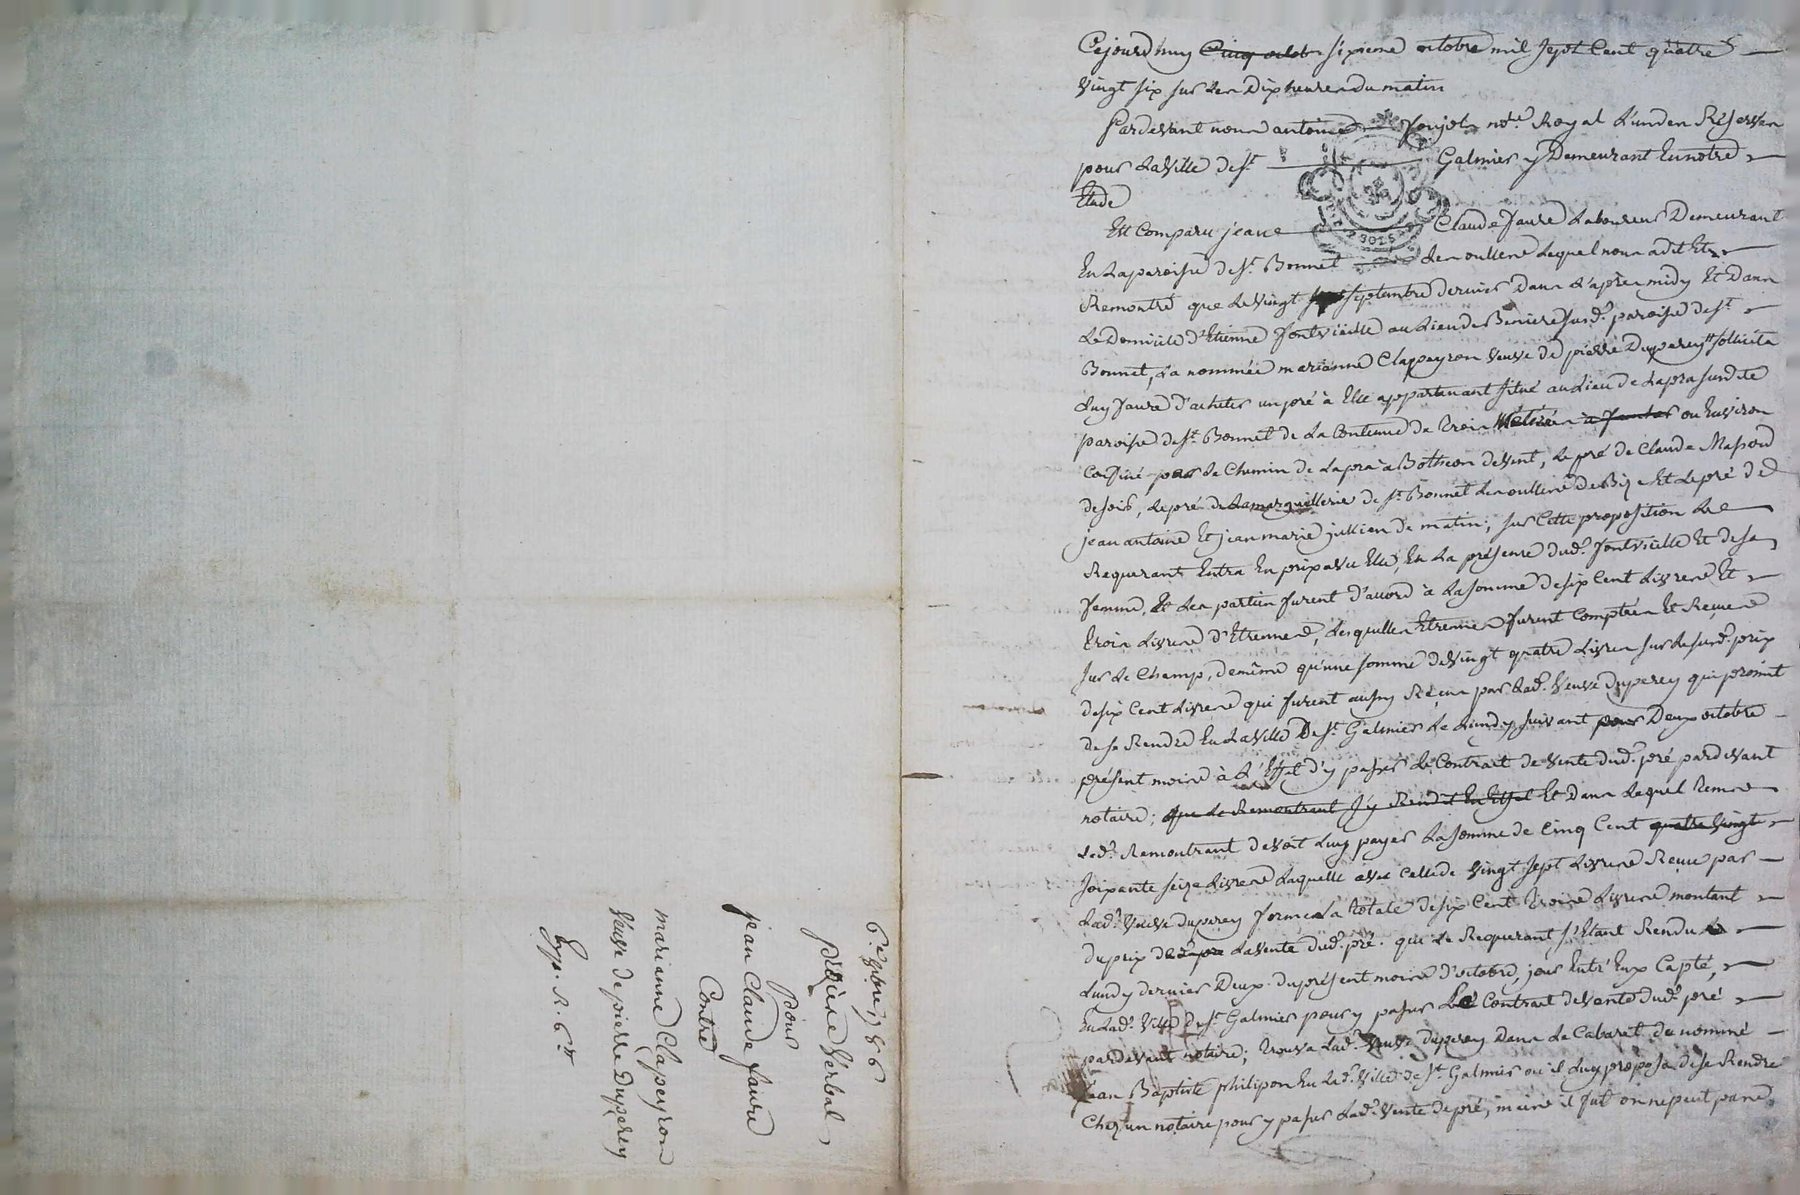 Cejourdhuy Cinq octob sixieme octobre mil sept Cent quatre
Vingt six sur les dix heures du matin
Pardevant nous antoine ponjol note. Royal L'un des Réservés
pour La Ville de St. Galmier y Demeurant En notre
Etude
Est Comparu jean Claude faure Laboureur Demeurant
En La paroisse de St. Bonnet Les oulles Lequel nous a dit Et
Remontré que Le Vingt sept septembre dernier Dans L'après midy Et Dans
Le Domicile d'Etienne fontvieille au Lieu de susd. paroisse de St.
Bonnet, La nommée marianne Clapeyron Veuve de pierre Duperey sollicita
Luy faure d'acheter un pré à Elle appartenant situé au Lieu de Lapra susdite
paroisse de St. Bonnet de La Contenue de trois ou Environ
Confiné par Le Chemin de Lapra à Botheon de Vent, Le pré de Claude Massou
de soir, Le pré de Lamarguillerie de St. Bonnet Les oulles de Bise Et Le pré de
jean antoine Et jean marie jullien de matin; sur Cette proposition Le
Requerant Entra En prix avec Elle, En La présence dud. fontvieille Et de sa
femme, Et Les parties furent d'accord à La somme de six Cent Livres Et
trois Livres d'Etrennes, Lesquelles Etrennes furent Comptées Et Reçues
sur Le Champ, de même qu'une somme de Vingt quatre Livres sur Le susd. prix
de six Cent Livres qui furent aussy Reçus par Lad. Veuve duperey qui promit
de se Rendre En La Ville De St. Galmier Le Lundy suivant pour Deux octobre
présent mois à L'Effet d'y passer Le Contrat de Vente dud. pré pardevant
notaire; que Le Remontrant s'y Rendit En Effet Et Dans Lequel tems
Led. Remontrant devoit Luy payer La somme de Cinq Cent quatre Vingt
soixante seize Livres Laquelle avec Celle de Vingt sept Livres Reçue par
Lad. Veuve duperey forme La totale de six Cent trois Livres montant
du prix de La Vente dud. pré. que Le Requerant s'Etant Rendu
Lundy dernier Deux du présent mois d'octobre, jour Entr'Eux Capté,
En Lad. Ville de St. Galmier pour y passer Le Contrat de Vente dud. pré
pardevant notaire; trouva Lad. Veuve duperey Dans Le Cabaret du nommé
jean Baptiste philipon En Lad. Ville de St. Galmier où il Luy proposa de se Rendre
Chez un notaire pour y passer Lad. Vente de pré, mais il fut on ne peut pas
6. 8bre 1786
Procès Verbal
Pour
jean Claude faure
Contre
marianne Clapeyron
Veuve de pierre Duperey
Exp. R. 6s